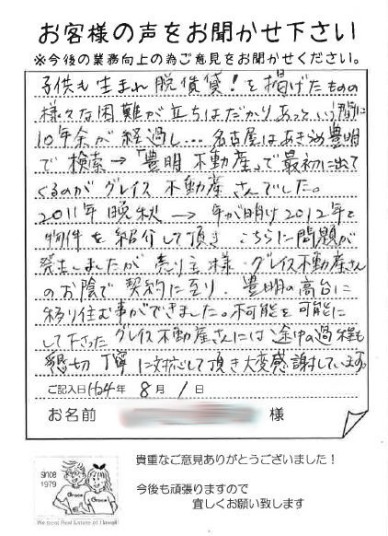 お客様の声をお聞かせ下さい
※今後の業務向上の為ご意見をお聞かせください。
子供も生まれ脱賃貸!を掲げたものの
様々な困難が立ちはだかりあっという間に
10年余が経過し… 名古屋はあきらめ豊明
で検索→「豊明 不動産」で最初に出て
くるのがグレイス不動産さんでした。
2011年晩秋 → 年が明け2012年と
物件を紹介して頂き こちらに問題が
発生しましたが 売り主様・グレイス不動産さん
のお陰で契約に至り、豊明の高台に
移り住む事ができました。不可能を可能に
して下さったグレイス不動産さんには途中の過程も
懇切丁寧に対応して頂き大変感謝しています。
ご記入日 年 8 月 1 日
お名前 様
貴重なご意見ありがとうございました!
今後も頑張りますので
宜しくお願い致します
since
1979
Grace Grace